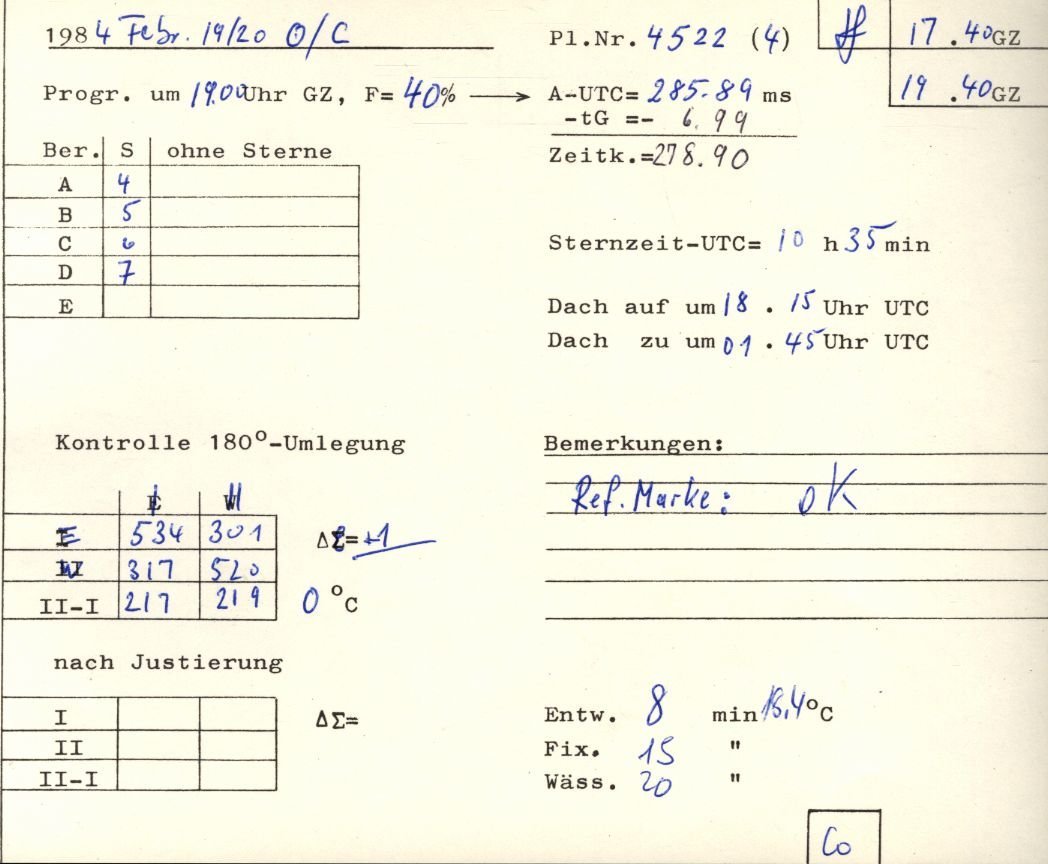 1984 Febr. 19/20 O/C
Pl.Nr. 4522 (4)
17.40GZ
19.40GZ
Progr. um 19.00Uhr GZ, F= 40% → A-UTC= 285.89 ms
-tG =- 6.99
Zeitk.=278.90
Ber. S ohne Sterne
A 4
B 5
C 6
D 7
E
Sternzeit-UTC= 10 h 35 min
Dach auf um 18 . 15 Uhr UTC
Dach zu um 01 . 45 Uhr UTC
Kontrolle 180°-Umlegung
I II
E 534 301 ΔΣ= +1
W 317 520
II-I 217 219 0 °C
Bemerkungen:
Ref. Marke: OK
nach Justierung
I ΔΣ=
II
II-I
Entw. 8 min 18,4°C
Fix. 15 "
Wäss. 20 "
Co